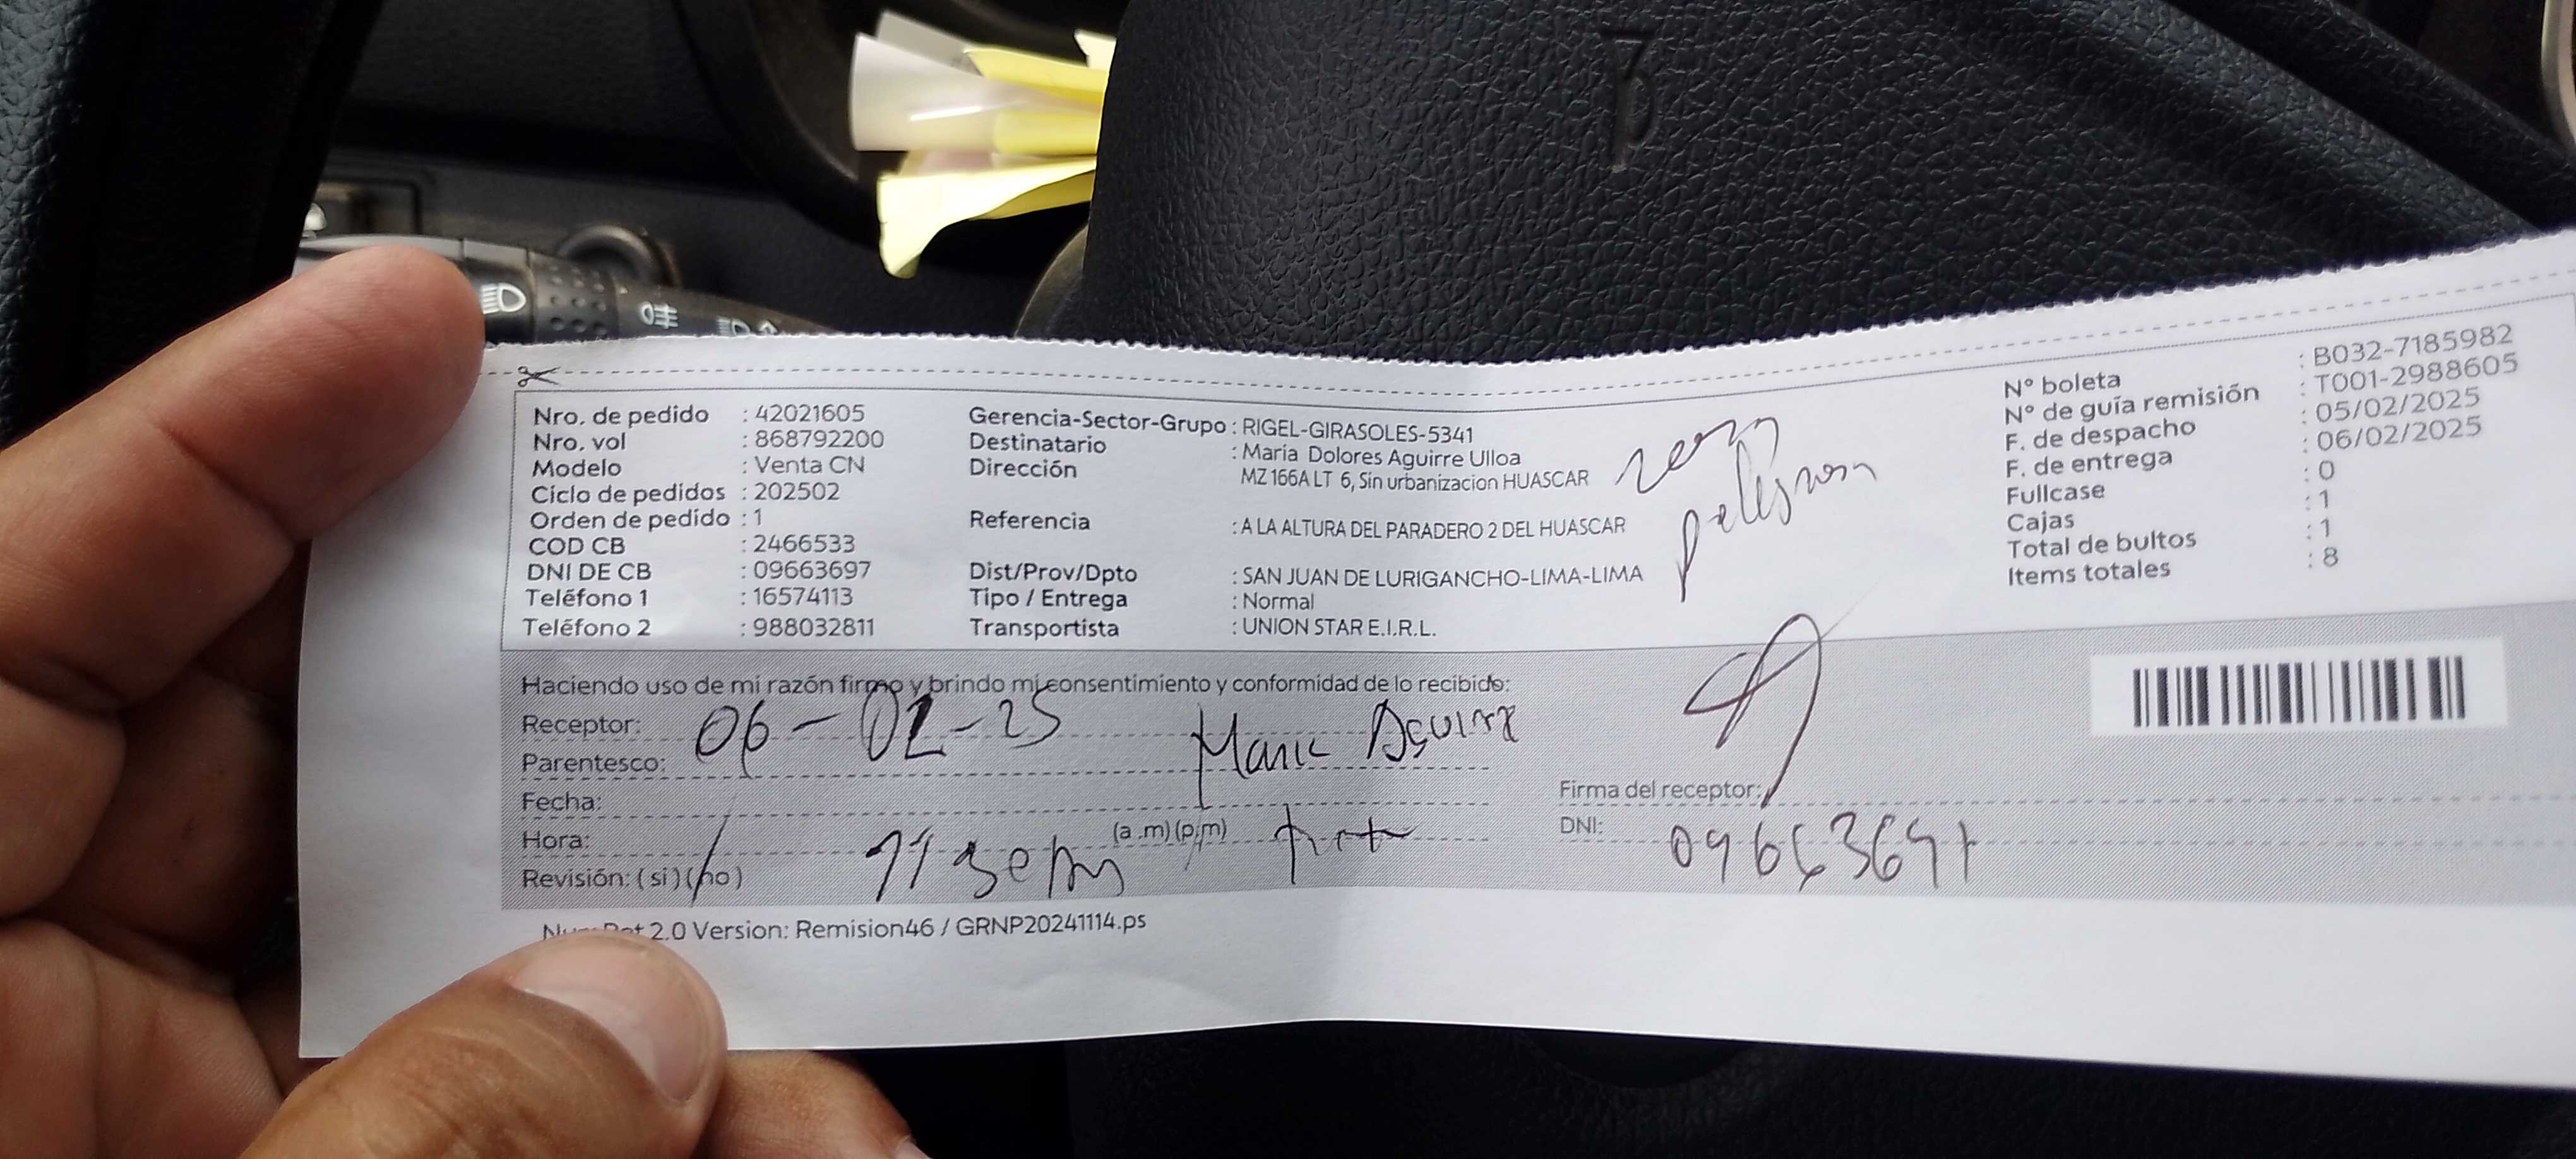 Nro. de pedido : 42021605
Nro. vol : 868792200
Modelo : Venta CN
Ciclo de pedidos : 202502
Orden de pedido : 1
COD CB : 2466533
DNI DE CB : 09663697
Teléfono 1 : 16574113
Teléfono 2 : 988032811
Gerencia-Sector-Grupo : RIGEL-GIRASOLES-5341
Destinatario : María Dolores Aguirre Ulloa
Dirección MZ 166A LT 6, Sin urbanizacion HUASCAR
Referencia : A LA ALTURA DEL PARADERO 2 DEL HUASCAR
Dist/Prov/Dpto : SAN JUAN DE LURIGANCHO-LIMA-LIMA
Tipo / Entrega : Normal
Transportista : UNION STAR E.I.R.L.
N° boleta : B032-7185982
N° de guía remisión : T001-2988605
F. de despacho : 05/02/2025
F. de entrega : 06/02/2025
Fullcase : 0
Cajas : 1
Total de bultos : 1
Items totales : 8
Haciendo uso de mi razón firmo y brindo mi consentimiento y conformidad de lo recibido:
Receptor: 06-02-25 Aguirre
Parentesco:
Fecha:
Hora: (a.m)(p.m)
Revisión: (si)(no)
Firma del receptor:
DNI: 09663697
2.0 Version: Remision46 / GRNP20241114.ps